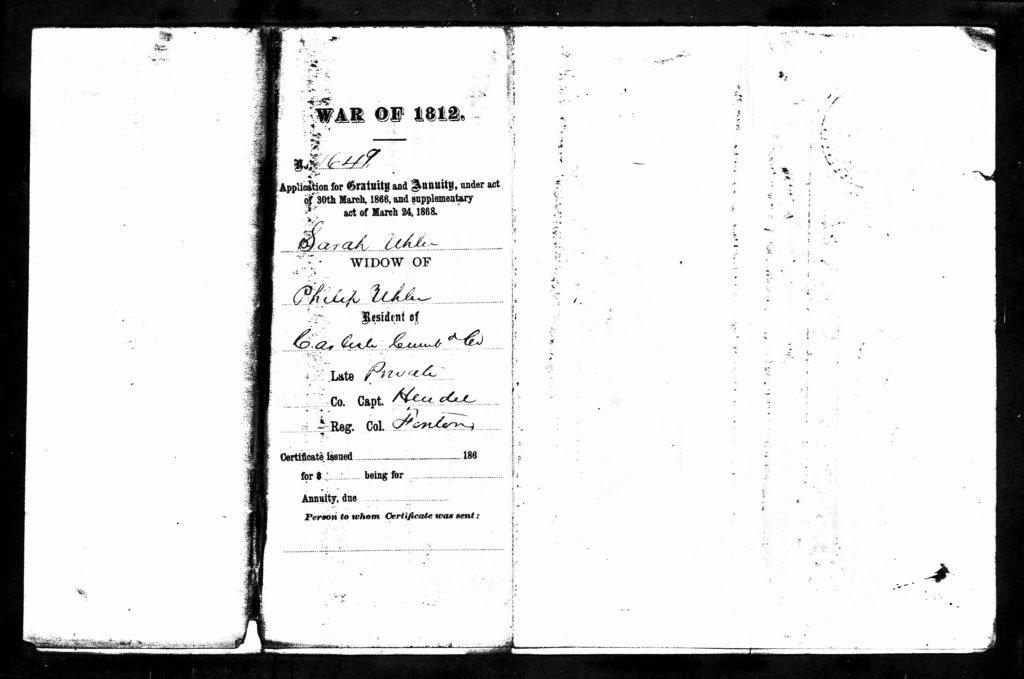 WAR OF 1812.
No. 1649
Application for Gratuity and Annuity, under act
of 30th March, 1866, and supplementary
act of March 24, 1868.
Sarah Uhler
WIDOW OF
Philip Uhler
Resident of
Carlisle Cumbd Co
Late Private
Co. Capt. Hendel
Reg. Col. Fenton,
Certificate issued 186
for $ being for
Annuity, due
Person to whom Certificate was sent: